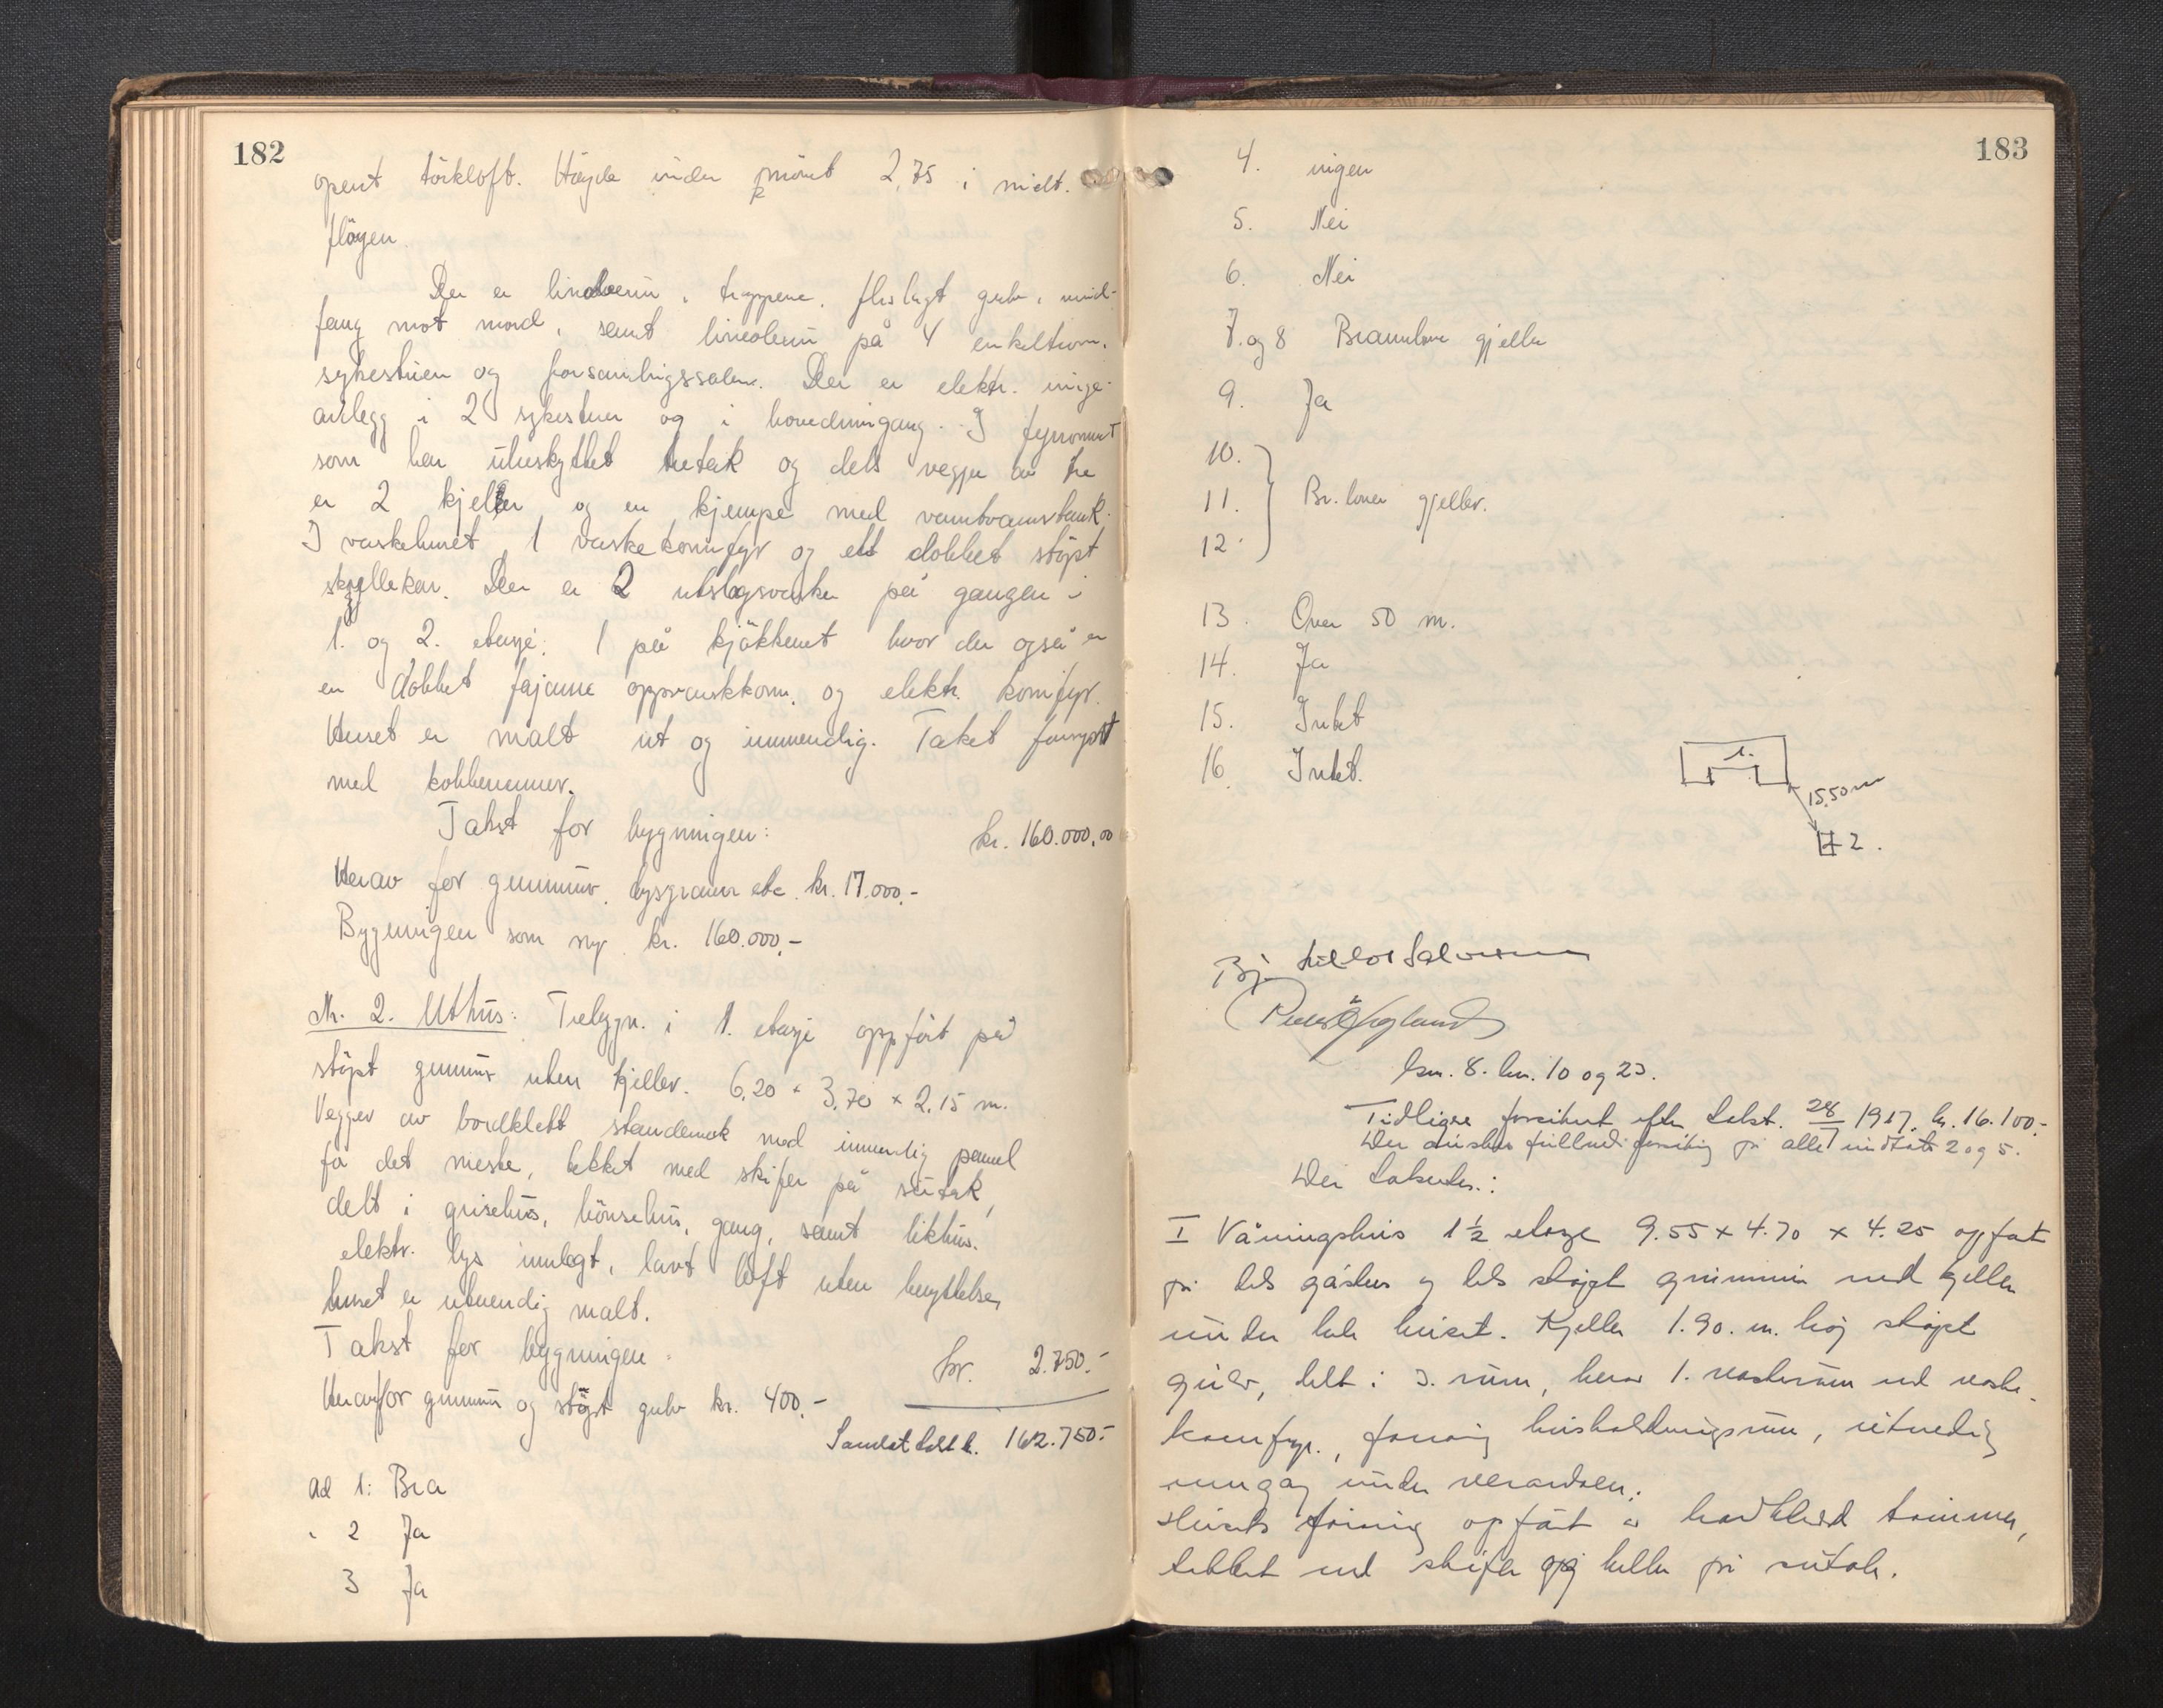 182
opent törkloft. Høyde under mönet 2,75 i midt-
fløyen.
Der er linoleum i trappene, flislagt gulv i vind-
fang mot nord, samt linoleum på 4 enkeltrom,
sykestuen og forsamlingssalen. Der er elektr. ringe-
anlegg i 2 sykestuer og i hovedinngang. I fyrrommet
som har ubeskyttet tretak og dels vegger av tre
er 2 kjeler og en kjempe med varmtvannstank.
I vaskehuset 1 vaskekomfyr og ett dobbet støpt
skyllekar. Der er 2 utslagsvasker på gangen i
1. og 2. etasje, 1 på kjökkenet hvor der også er
en dobbet fajanse oppvaskkum, og elektr. komfyr.
Huset er malt ut og innvendig. Taket forsynt
med kobberrenner.
Takst for bygningen: kr. 160.000,00
Herav for grunnmur, lysgraver etc. kr. 17.000,-
Bygningen som ny kr. 160.000,-
Nr. 2. Uthus: Trebygn. i 1. etasje oppført på
støpt grunnmur uten kjeller. 6,20 x 3,70 x 2,15 m.
Vegger av bordklett standerverk med innvendig panel
for det meste, tekket med skifer på sutak,
delt i grisehus, hönsehus, gang, samt likhus.
elektr. lys innlagt, lavt loft uten benyttelse,
huset er utvendig malt.
Takst for bygningen: kr. 2.750.-
Heravfor grunnmur og støpt gulv kr. 400,-
Samlet takst kr. 162.750.-
Ad 1: Bra
" 2 Ja
3 Ja
183
4. ingen
5. Nei
6. Nei
7. og 8 Brannlove gjelder
9. Ja
10.
11. Br. loven gjelder.
12.
13. Over 50 m.
14. Ja
15. Intet
16. Intet.
1.
15,50 m
2.
gnr. 8. bnr. 10 og 23.
Tidligere forsikret efter takst. 28/7 1917. kr. 16.100.-
Der ønskes fullverdiforsikring på alle undtatt 2 og 5.
Der takseres:
I Våningshus 1½ etage 9.55 x 4.70 x 4.25 opført
på dels gråsten og dels støpt grunnmur med kjeller
under hele huset. Kjeller 1.90. m. høj støpt
gulv, delt i 3. rum, herav 1. vaskerum med vaske-
komfyr, forøvrig husholdningsrum, utvendig
inngang under verandaen.
Husets forøvrig opført av bordklædd tømmer,
tekket med skifer og heller på sutak.